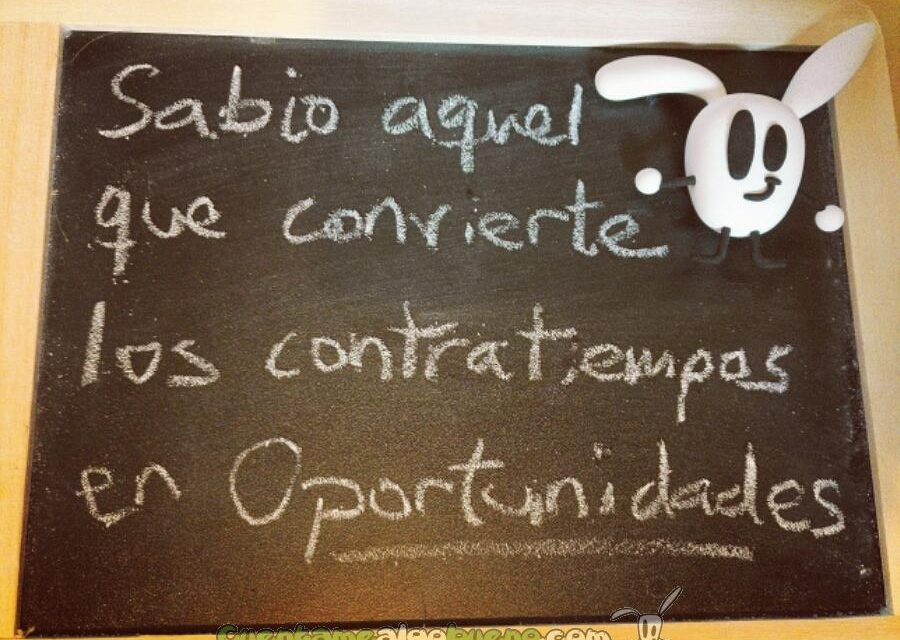 Sabio aquel
que convierte
los contratiempos
en Oportunidades
Cuentamealgobueno.com